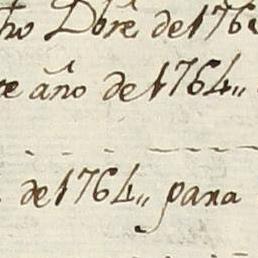 Dbre de 176
año de 1764,,
de 1764,, para